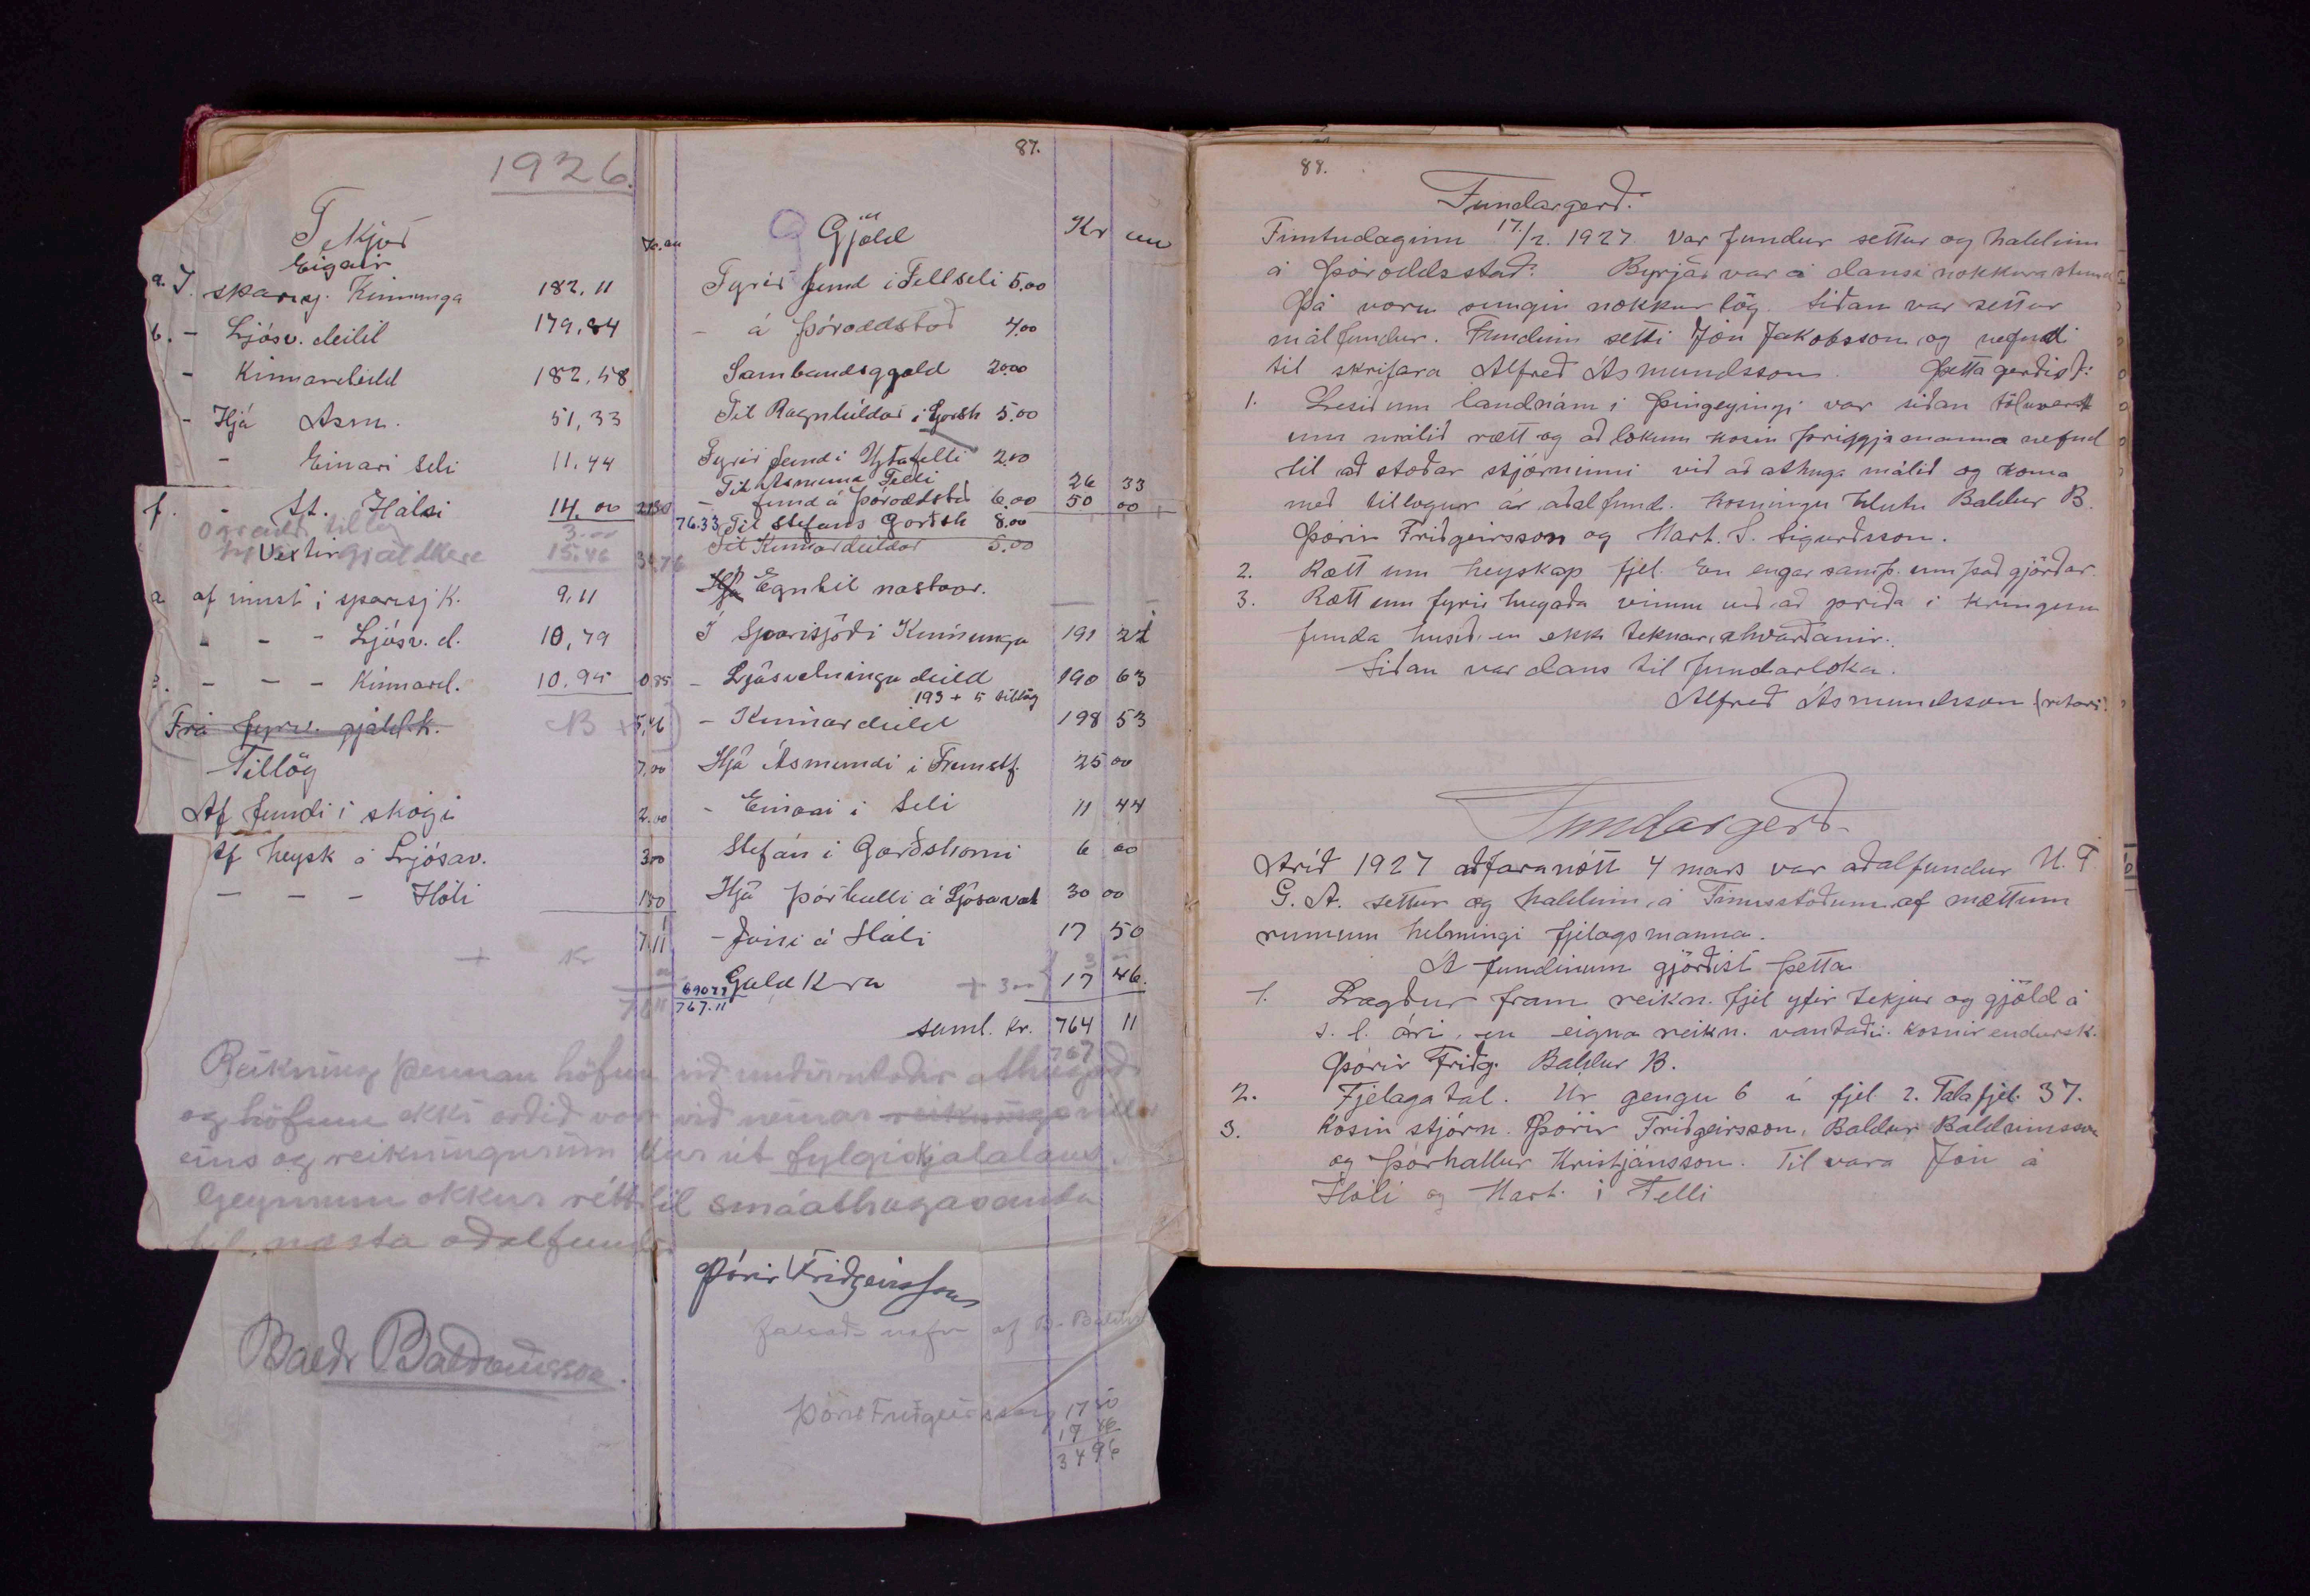 1926.
Tekjur
Kr. au
Eignir
a. Í sparisj. Kinnunga 182,11
b. - Ljósv. deild 179,84
- Kinnardeild 182,58
- Hjá Ásm. 51,33
- Einari Seli 11,44
f. - St. Hálsi 14.00
3.00
Vextir gjaldkera 15.46
a af innst í sparisj K. 9,11
- - - Ljósv. d. 10,79
- - - Kinnard. 10.95
Frá fyrv. gjaldk. 5,46
Tillög 7,00
Af fundi í skógi 2.00
Af heysk á Ljósav. 3,00
- - - Hóli 1,50
+ Kr
Reikning þennan höfum við undirritaðir athugað
og höfum ekki orðið varir við neinar reiknings villur
eins og reikningurinn ber út fylgiskjalalaus.
Geymum okkur rétt til smáathugasemda
til næsta aðalfundar
Baldr Baldvinsson.
87.
Gjöld
Kr au
Fyrir fund í Fellseli 5.00
- á Þóroddstað 4.00
Sambandsggald 20.00
Til Ragnhildar í Garðsh 5.00
Fyrir fund í Yztafelli 2.00
Til Asmund Felli 26 33
- fund á Þóroddstað 6.00 50 00
76.33 Til Stefáns Garðsh 8.00
Til Kinnardeildar 5.00
Egnhil næstaár.
Í Sparisjóði Kinnunga 191 22
- Ljósvetninga deild 190 63
193 + 5 tillög
- Kinnardeild 198 53
Hjá Ásmundi í Fremstf. 25 00
- Einari í Seli 11 44
Stefán í Garðshorni 6 00
Hjá Þórhalli á Ljósavat 30 00
- Jóni á Hóli 17 50
Gjaldkera + 3.00 17 46.
690.78
767.11
saml. kr. 764 11
767
Þórir Friðgeirsson
falsað nafn af B. Baldv
Þórir Friðgeirsson
17 50
17 46
34 96
88.
Fundargerð.
Fimtudaginn 17./2. 1927. Var fundur settur og haldinn
á Þóroddsstað. Byrjað var á dansi nokkura stund
Þá voru sungin nokkur lög. Síðan var settur
málfundur. Fundinn setti Jón Jakobsson og nefndi
til skrifara Alfreð Ásmundsson. Þetta gerðist:
1. Lesið um landnám í Þingeyingi var síðan töluvert
um málið rætt og að lokum kosin þriggja manna nefnd
til að stoðar stjórninni við að athuga málið og koma
með tillogur ár aðalfund. Kosningu hlutu Baldur B.
Þórir Friðgeirsson og Mart. S. Sigurðsson.
2. Rætt um heyskap fjel. En engar samþ. um það gjörðar.
3. Rætt um fyrir hugaða vinnu við að prýða í kringum
funda húsið, en ekki teknar ákvarðanir.
Síðan var dans til fundarloka.
Alfreð Ásmundsson (ritari.
Fundargerð
Arið 1927 aðfaranótt 4 mars var aðalfundur U. F.
G. A. settur og haldinn, á Finnsstöðum, af mættum
rúmum helmingi fjelagsmanna.
A fundinum gjörðist þetta
1. Lagður fram reikn. fjel yfir tekjur og gjöld á
s. l. ári, en eigna reikn. vantaði. Kosnir endursk.
Þórir Friðg. Baldur B.
2. Fjelaga tal. Úr gengu 6 í fjel. 2. Tala fjel. 37.
3. Kosin stjórn. Þórir Friðgeirsson, Baldur Baldvinsson
og Þórhallur Kristjánsson. Til vara Jón á
Hóli og Mart. í Felli